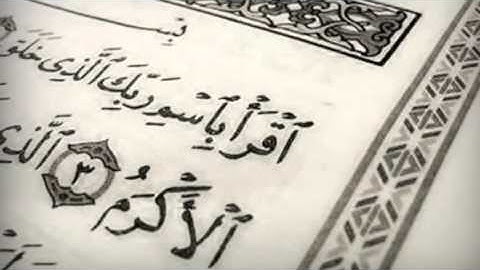 بِسْمِ
ٱقْرَأْ بِٱسْمِ رَبِّكَ ٱلَّذِى خَلَقَ
ٱلْأَكْرَمُ ٣ ٱلَّذِى